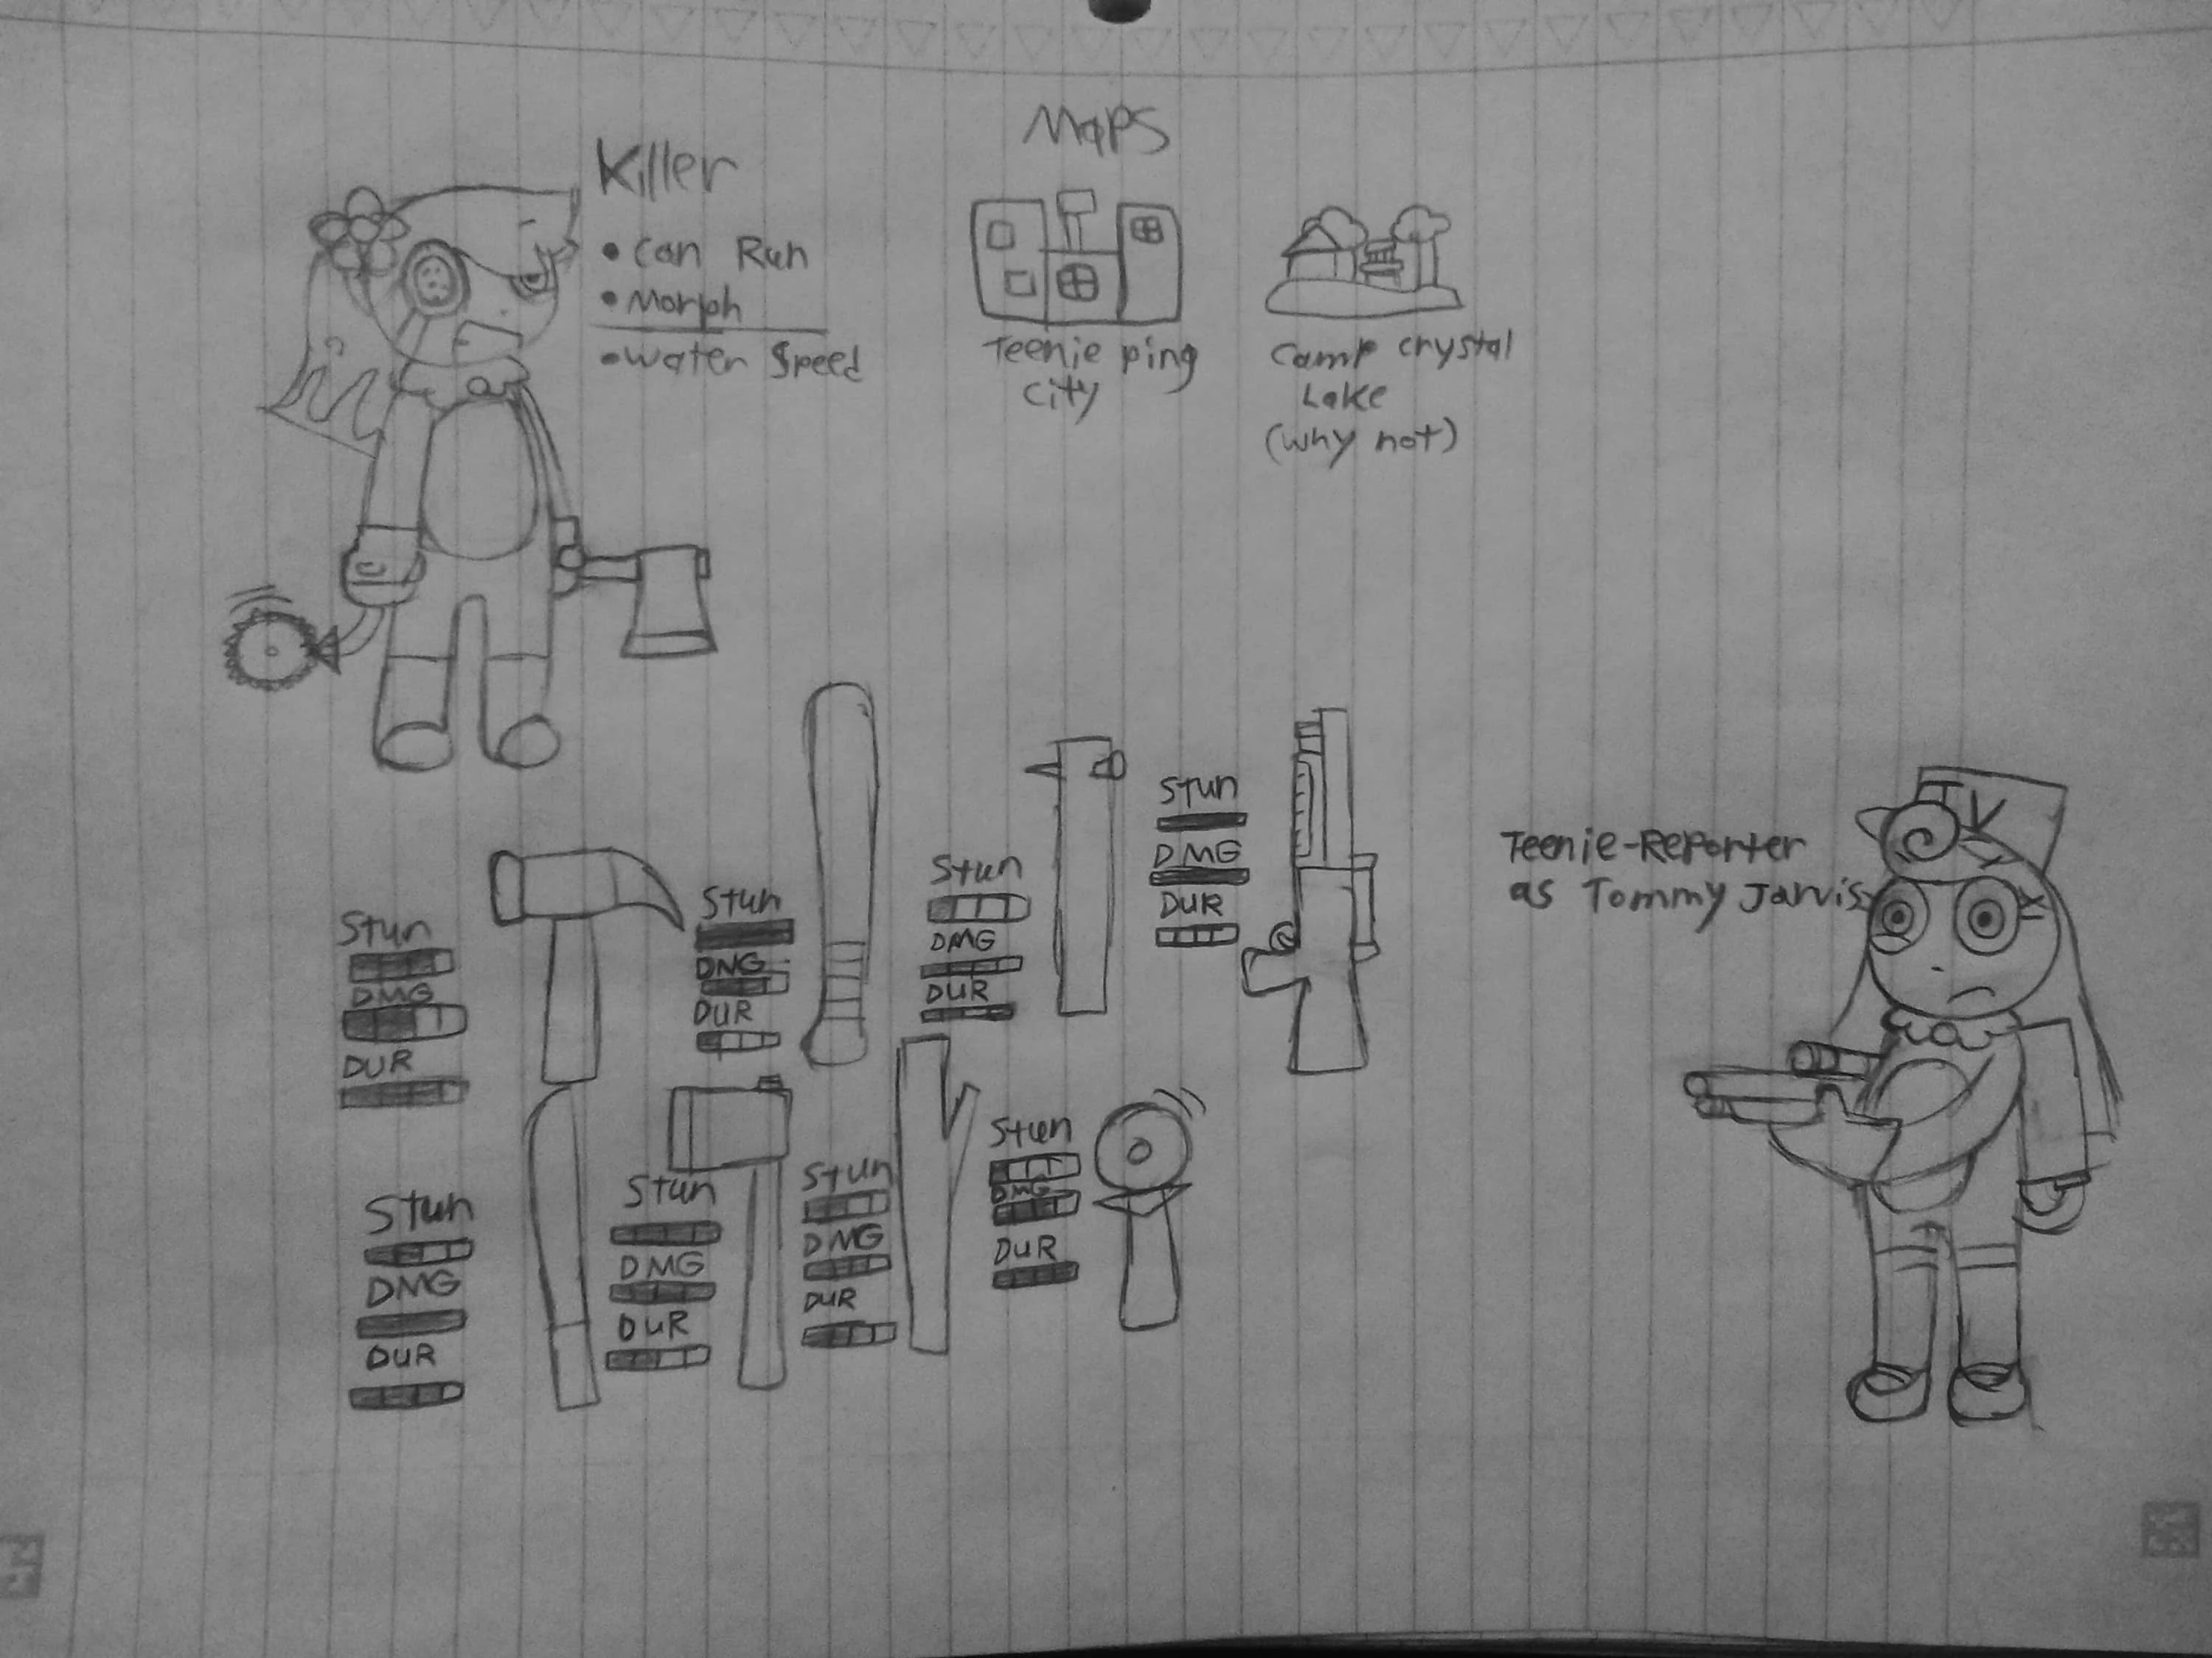 Maps
Killer
• Can Run
• Morph
• Water Speed
Teenie ping
City
Camp Crystal
Lake
(why not)
Stun
DMG
DUR
Stun
DMG
DUR
Stun
DMG
DUR
Stun
DMG
DUR
Teenie-Reporter
as Tommy Jarvis
TV
Stun
DMG
DUR
Stun
DMG
DUR
Stun
DMG
DUR
Stun
DMG
DUR